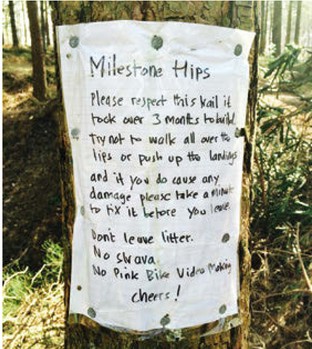 Milestone Hips
Please respect this trail it
took over 3 months to build.
Try not to walk all over the
lips or push up the landings
and if you do cause any
damage please take a minute
to fix it before you leave.
Don't leave litter.
No strava.
No Pink Bike Video Making
cheers!